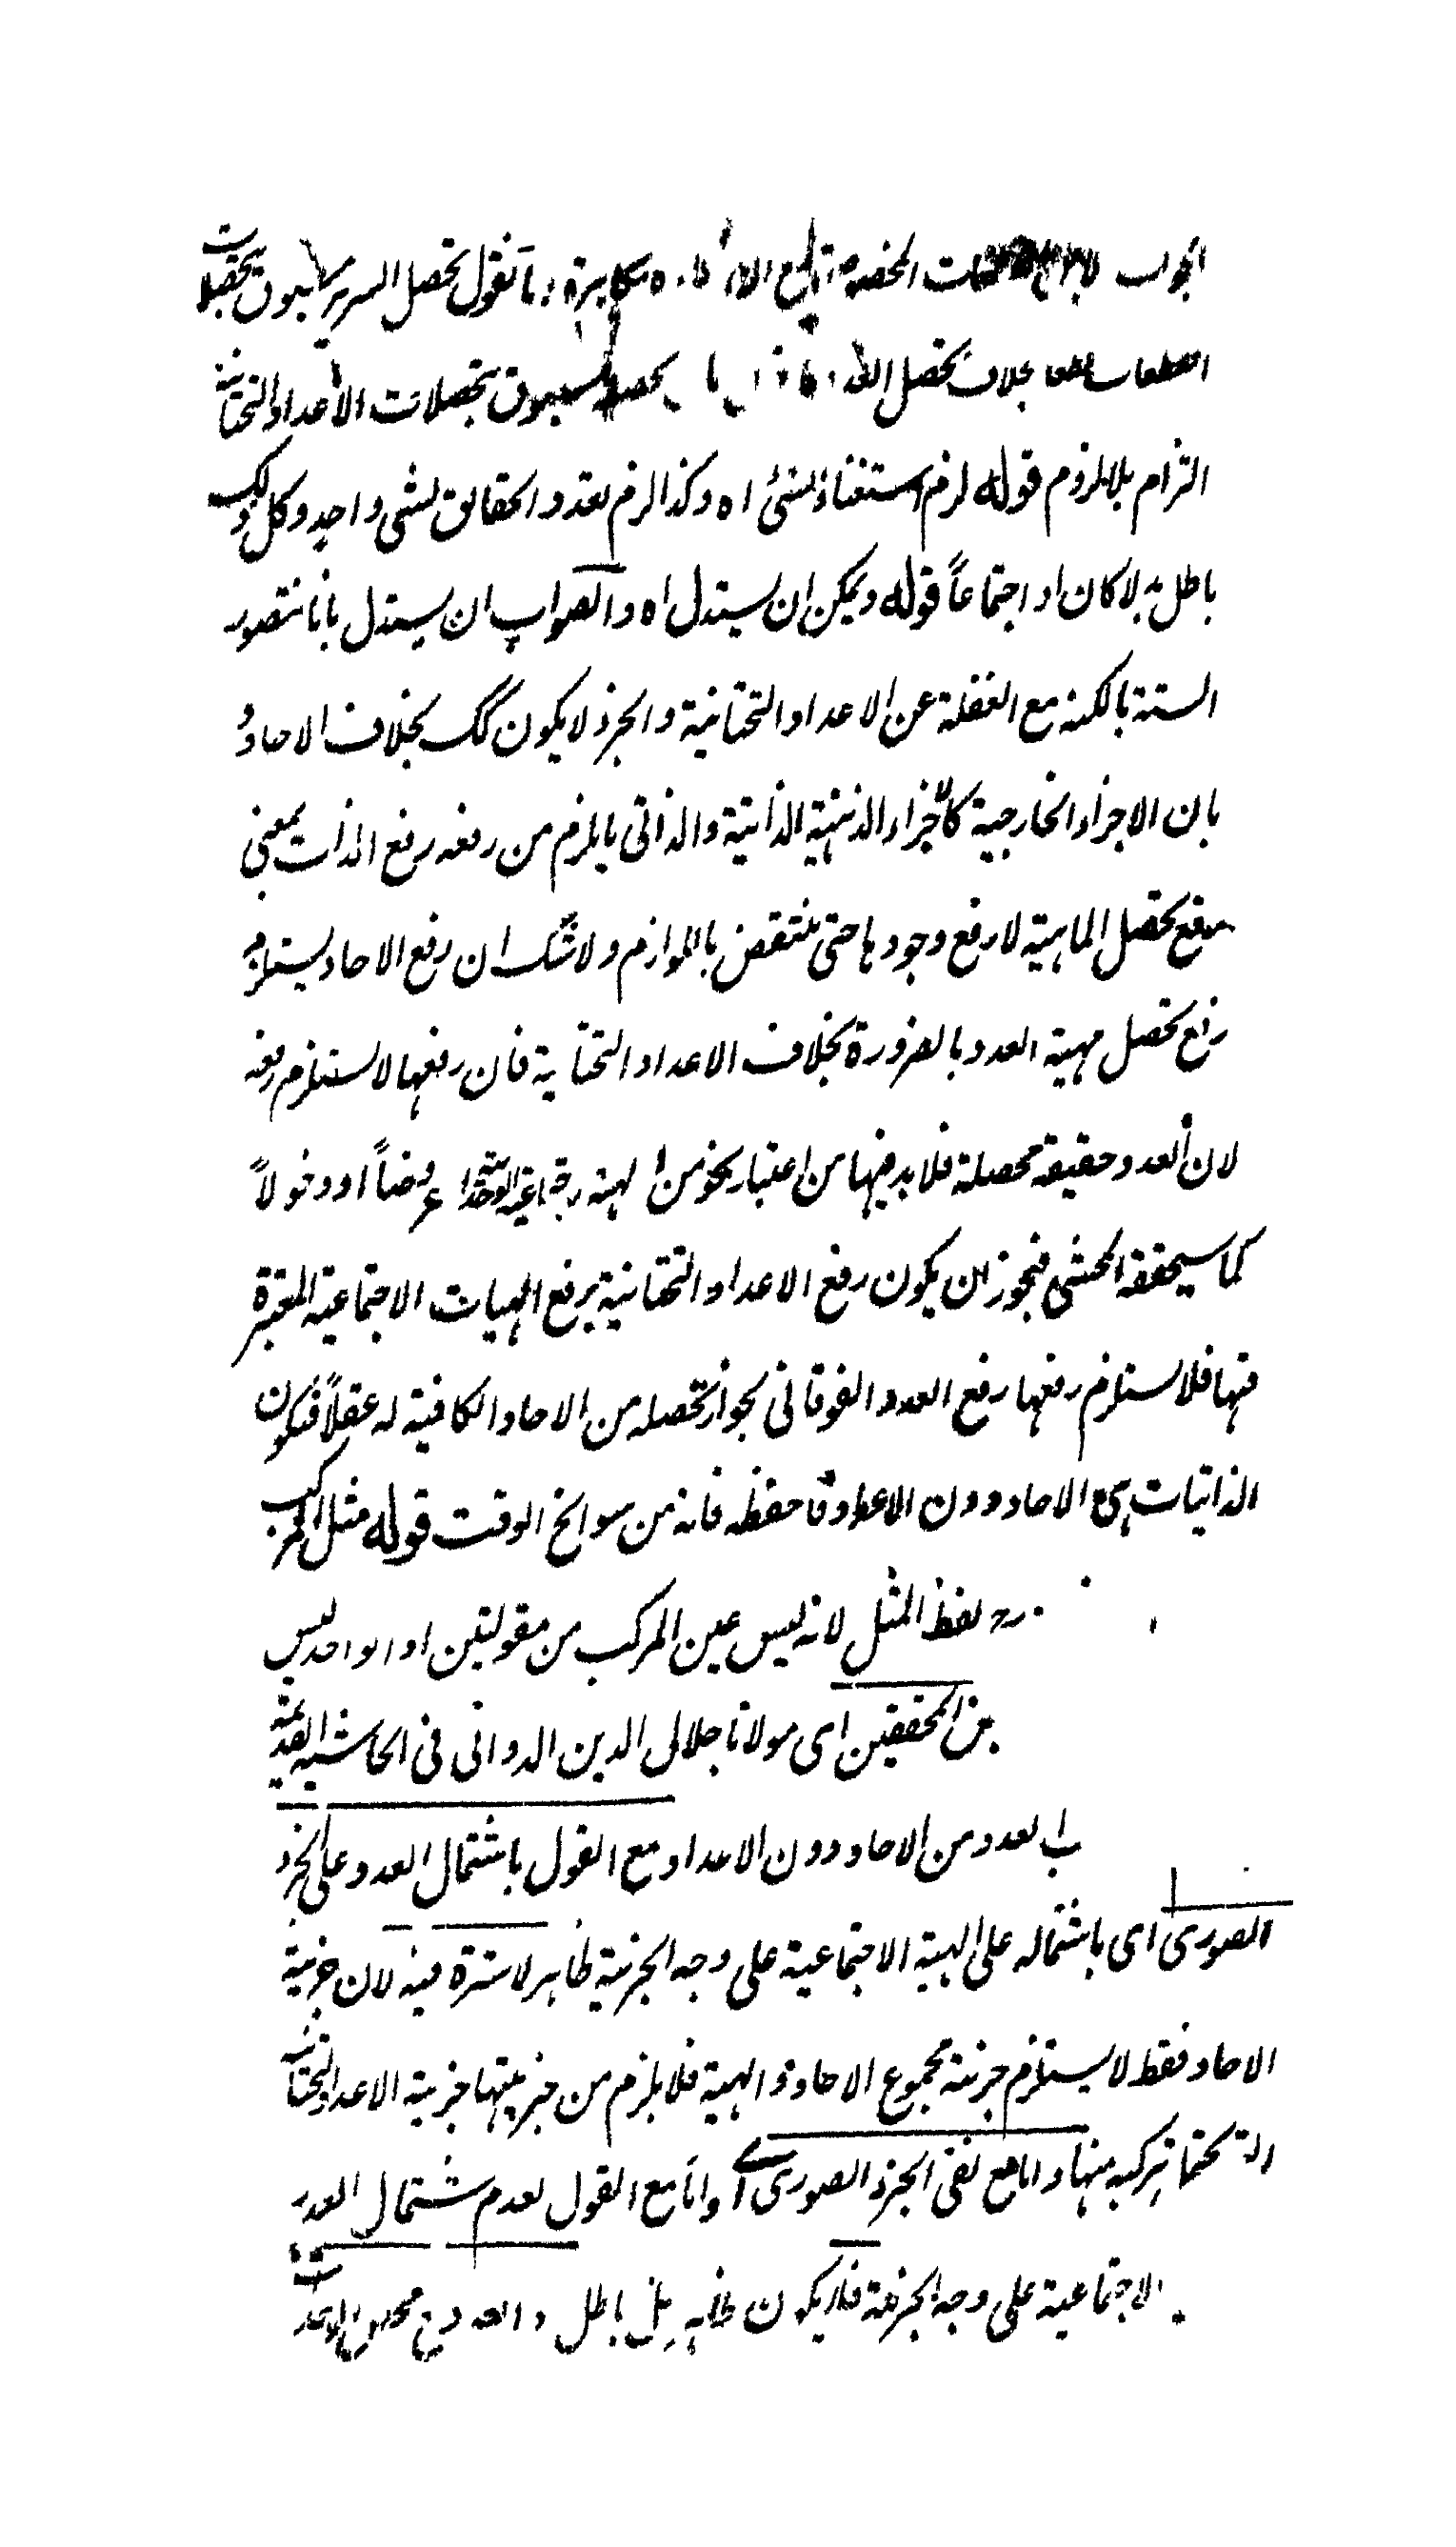 الجواب مكابرة فانا نقول تحصل السرير مسبوق بتحصلات
القطعات بخلاف تحصل مسبوق بتحصلات الاعداد التحتانية
التزام بلا ملزوم قوله لزم استغناء الشئ اه وكذا لزم تعدد الحقائق لشئ واحد وكل ذلك
باطل بدلا كان او اجتماعاً قوله ويمكن ان يستدل اه والصواب ان يستدل بانا نتصور
الستة بالكنه مع الغفلة عن الاعداد التحتانية والجزء لا يكون كك بخلاف الاحاد و
بان الاجزاء الخارجية كالاجزاء الذهنية الذاتية والذاتى ما يلزم من رفعه رفع الذات بمعنى
رفع تحصل الماهية لا رفع وجودها حتى ينتقض باللوازم ولا شك ان رفع الاحاد يستلزم
رفع تحصل مهية العدد بالضرورة بخلاف الاعداد التحتانية فان رفعها لا يستلزم رفعه
لان العدد حقيقة محصلة فلا بد فيها من اعتبار نحو من الهيئة عروضاً او دخولاً
كما سيحققه المحشى فيجوز ان يكون رفع الاعداد التحتانية برفع الهيات الاجتماعية المعتبرة
فيها فلا يستلزم رفعها رفع العدد الفوقانى لجواز تحصله من الاحاد الكافية له عقلاً فيكون
الذاتيات هى الاحاد دون الاعداد فاحفظه فانه من سوانح الوقت قوله مثل المركب
لفظ المثل لانه ليس عين المركب من مقولتين اذ الواحد ليس
المحققين اى مولانا جلال الدين الدوانى فى الحاشية القديمة
العدد من الاحاد دون الاعداد مع القول باشتمال العدد على الجزء
الصورى اى باشتماله على الهيئة الاجتماعية على وجه الجزئية ظاهر لا سترة فيه لان جزئية
الاحاد فقط لا يستلزم جزئية مجموع الاحاد والهيئة فلا يلزم من جزئيتها جزئية الاعداد التحتانية
تركبه منها واما مع نفى الجزء الصورى اى واما مع القول بعدم اشتمال العدد
الاجتماعية على وجه الجزئية فلا يكون ظاهر بل باطل